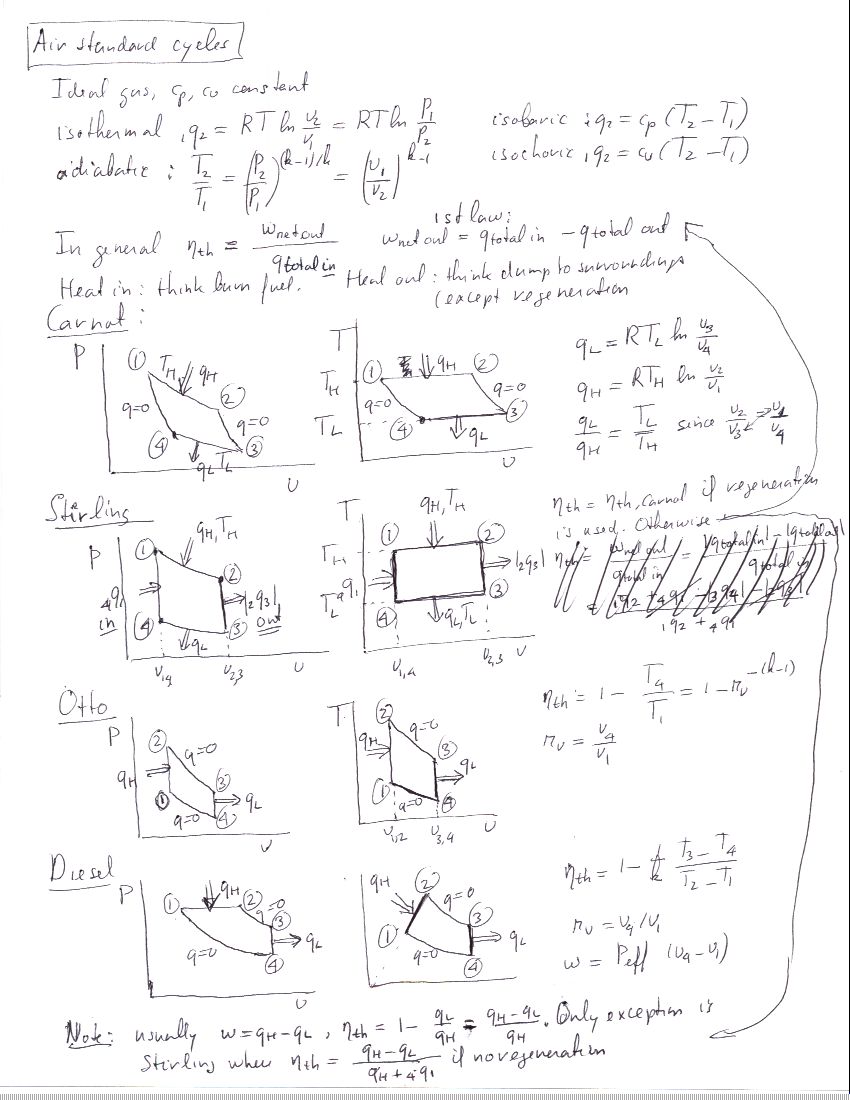 Air standard cycles
Ideal gas, cp, cv constant
isothermal 1q2 = RT ln v2/v1 = RT ln P1/P2
isobaric 1q2 = cp (T2 − T1)
isochoric 1q2 = cv (T2 − T1)
adiabatic : T2/T1 = (P2/P1)^(k-1)/k = (v1/v2)^k-1
In general ηth = wnet out / qtotal in
1st law:
wnet out = qtotal in − qtotal out
Heat in: think burn fuel. Heat out: think dump to surroundings
(except regeneration
Carnot:
P ① TH qH ② q=0 q=0 ④ qL TL ③ v
T TH TL ① qH ② q=0 q=0 ④ qL ③ v
qL = RTL ln v3/v4
qH = RTH ln v2/v1
qL/qH = TL/TH since v2/v3 = v1/v4
Stirling
P ① qH, TH ② 4q1 in |2q3| out ④ qL ③ v1,4 v2,3 v
T qH, TH ① ② TH TL 4q1 |2q3| ④ qL, TL ③ v1,4 v2,3 v
ηth = ηth, carnot if regeneration
is used. Otherwise
ηth = wnet out / qtotal in = |qtotal in| − |qtotal out| / qtotal in
= 1q2 + 4q1 − |3q4| − |2q3| / 1q2 + 4q1
Otto
P ② q=0 qH ③ ① qL q=0 ④ v
T ② q=0 qH ③ ① qL q=0 ④ v1,2 v3,4 v
ηth = 1 − T4/T1 = 1 − rv^-(k-1)
rv = v4/v1
Diesel
P ① qH ② q=0 ③ qL q=0 ④ v
qH ② q=0 ① ③ qL q=0 ④
ηth = 1 − 1/k T3 − T4 / T2 − T1
rv = v4/v1
w = Peff (v4 − v1)
Note: usually w = qH − qL, ηth = 1 − qL/qH = qH − qL / qH. Only exception is
Stirling when ηth = qH − qL / qH + 4q1 if no regeneration